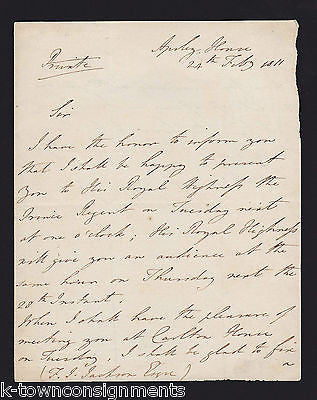 Apsley House
Private
24th Feby 1811
Sir
I have the honor to inform you
that I shall be happy to present
you to His Royal Highness the
Prince Regent on Tuesday next
at one o'clock; His Royal Highness
will give you an audience at the
same hour on Thursday next the
28th Instant.
When I shall have the pleasure of
meeting you at Carlton House
on Tuesday, I shall be glad to fix
a
(F. J. Jackson Esqre)
© k-townconsignments